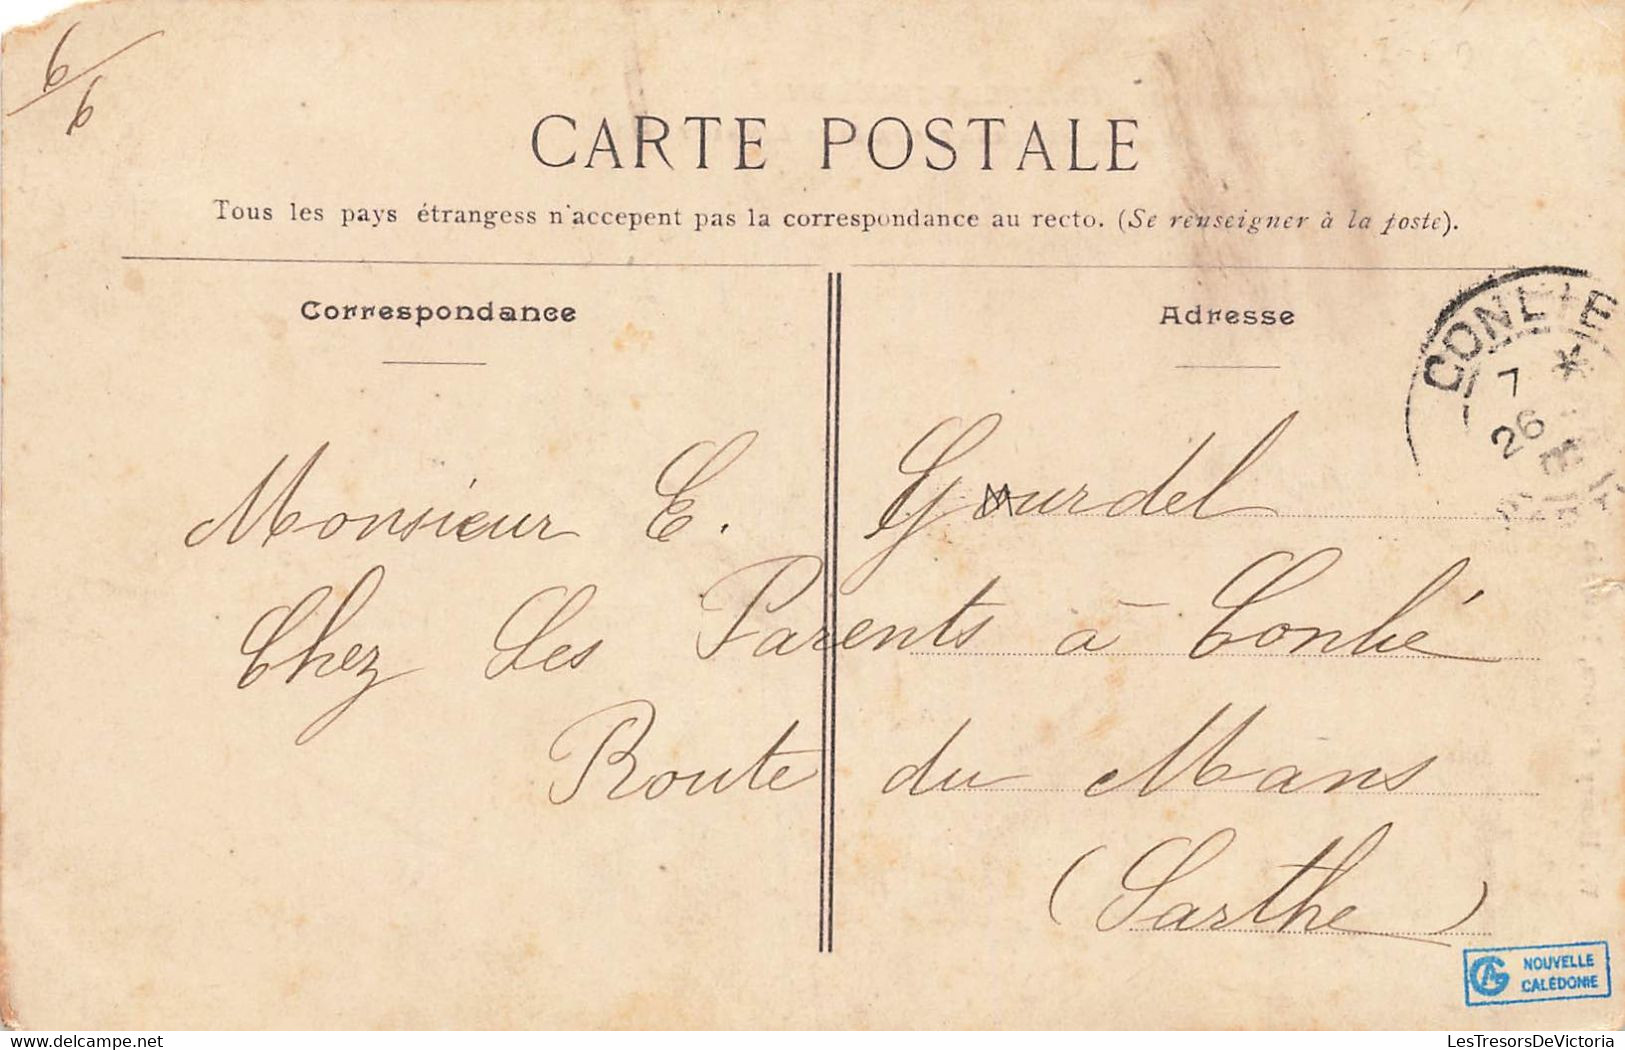 6/6
CARTE POSTALE
Tous les pays étrangess n'accepent pas la correspondance au recto. (Se renseigner à la poste).
Correspondance
Adresse
CONLIE
7 *
26
Monsieur E. Gourdel
Chez Ses Parents à Conlié
Route du Mans
(Sarthe)
NOUVELLE
CALÉDONIE
LesTresorsDeVictoria